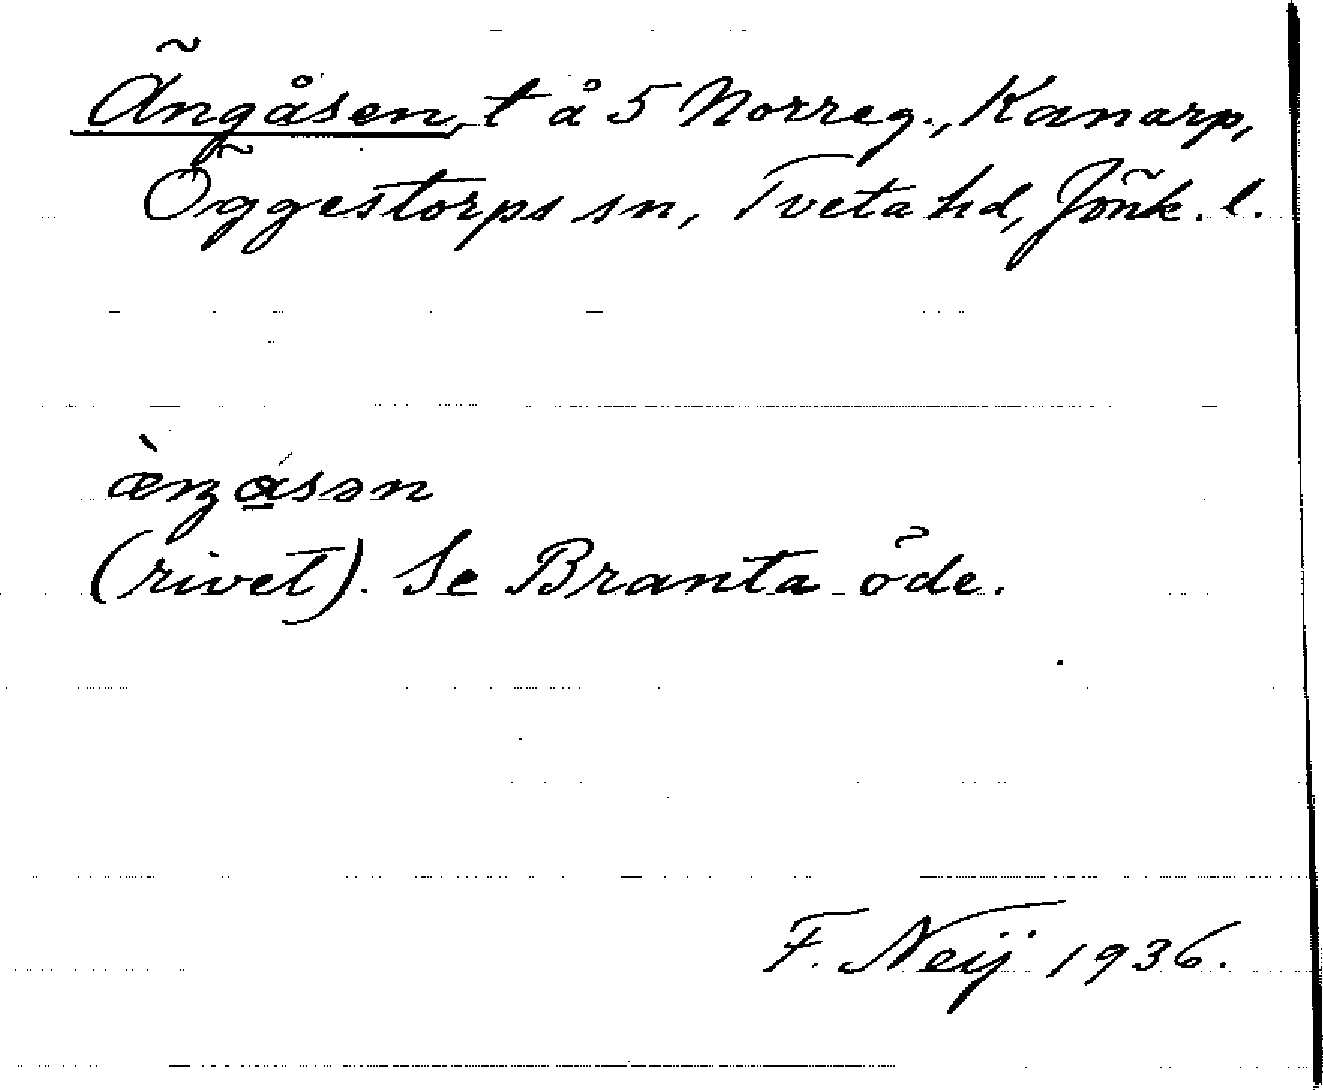 Ängåsen, t å 5 Norreg., Kanarp,
Öggestorps sn, Tveta hd, Jönk. l.
æ̀ŋåsən
(rivet). Se Branta öde.
F. Neij 1936.